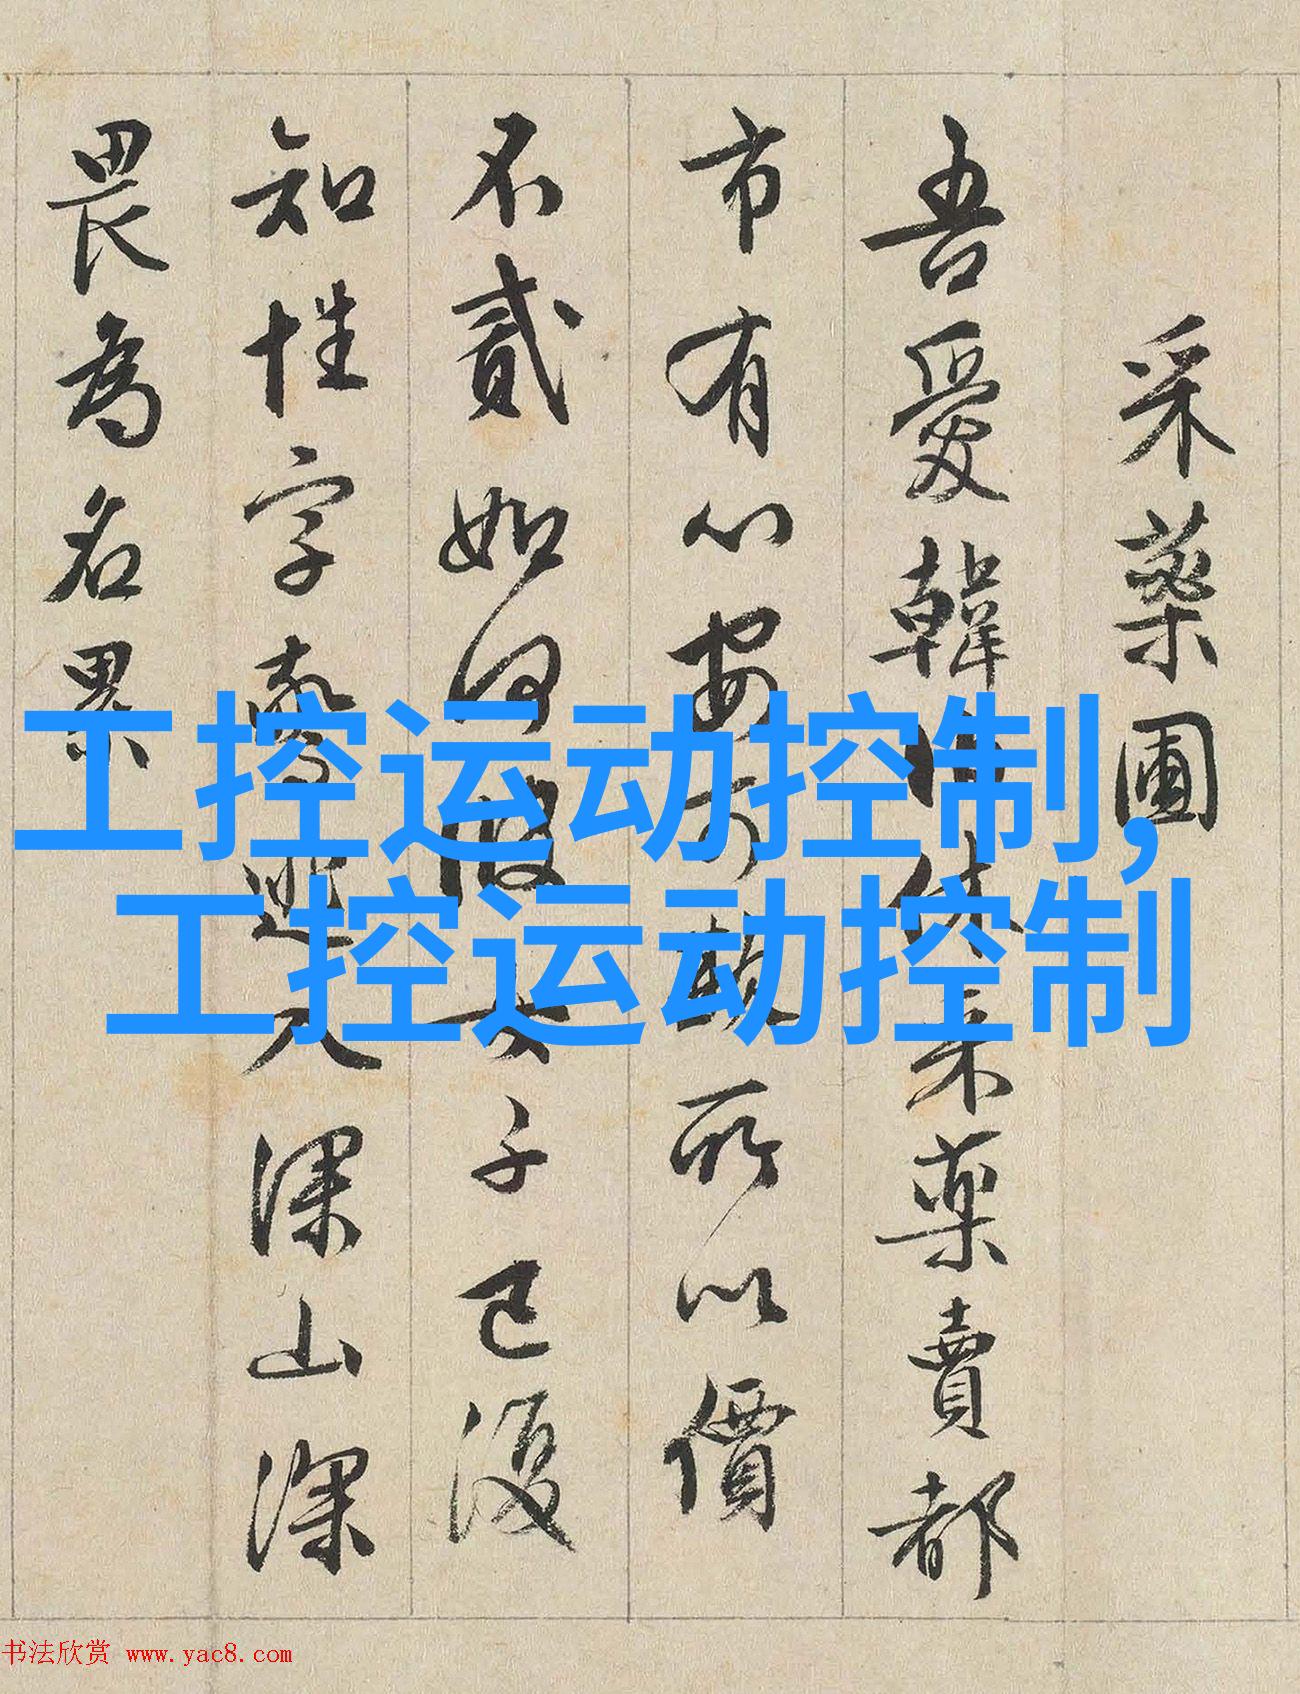 采藥圃
吾愛韓伯休采藥賣都
市有心安可欺所以價
不貳如何彼女子已復
知性字驚逃入深山深
畏為名累
工控运动控制,
工控运动控制
书法欣赏 www.yac8.com